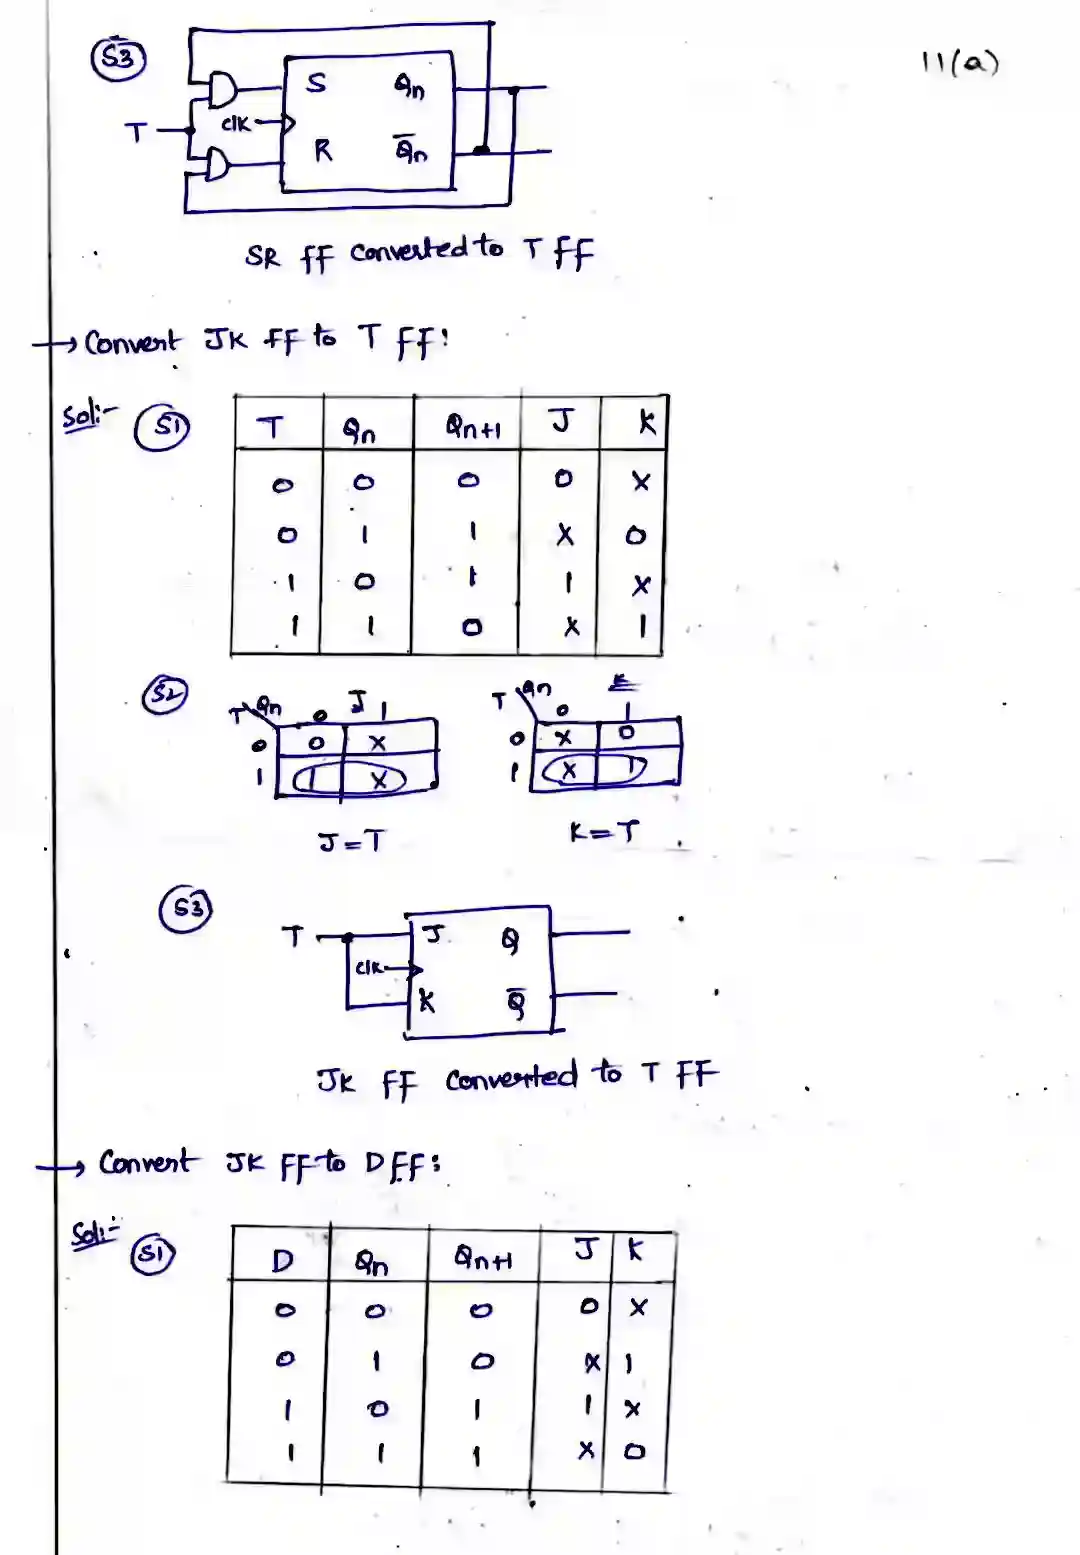 11(a)
S3
S Qn
T clk
R Q̅n
SR ff converted to T ff
→ Convert JK FF to T FF:
Sol:- S1
T Qn Qn+1 J K
0 0 0 0 X
0 1 1 X 0
1 0 1 1 X
1 1 0 X 1
S2
T Qn J 0 1
0 0 X
1 1 X
J=T
T Qn K 0 1
0 X 0
1 X 1
K=T
S3
T J Q
clk
K Q̅
JK FF Converted to T FF
→ Convert JK FF to D FF:
Sol:- S1
D Qn Qn+1 J K
0 0 0 0 X
0 1 0 X 1
1 0 1 1 X
1 1 1 X 0